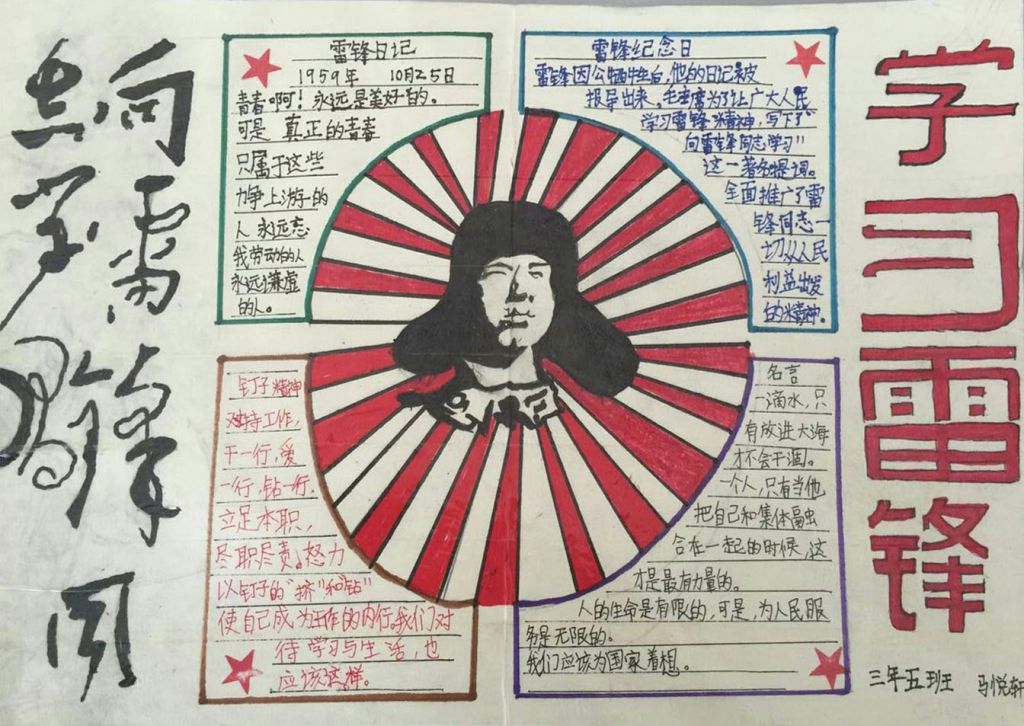 向雷锋同
志学习
雷锋日记
1959年 10月25日
青春啊!永远是美好的。
可是 真正的青春
只属于这些
力争上游的
人 永远忘
我劳动的人
永远谦虚
的人。
雷锋纪念日
雷锋因公牺牲后,他的日记被
报导出来。毛主席为了让广大人民
学习雷锋精神,写下了"
向雷锋同志学习"
这一著名提词。
全面推广了雷
锋同志一
切从人民
利益出发
的精神。
钉子精神
对待工作,
干一行,爱
一行,钻一行,
立足本职,
尽职尽责。努力
以钉子的"挤"和"钻"
使自己成为工作的内行。我们对
待学习与生活,也
应该这样。
名言
一滴水,只
有放进大海
才不会干涸。
一个人,只有当他
把自己和集体融
合在一起的时候,这
才是最有力量的。
人的生命是有限的,可是,为人民服
务是无限的。
我们应该为国家着想。
学习雷锋
三年五班 马悦轩